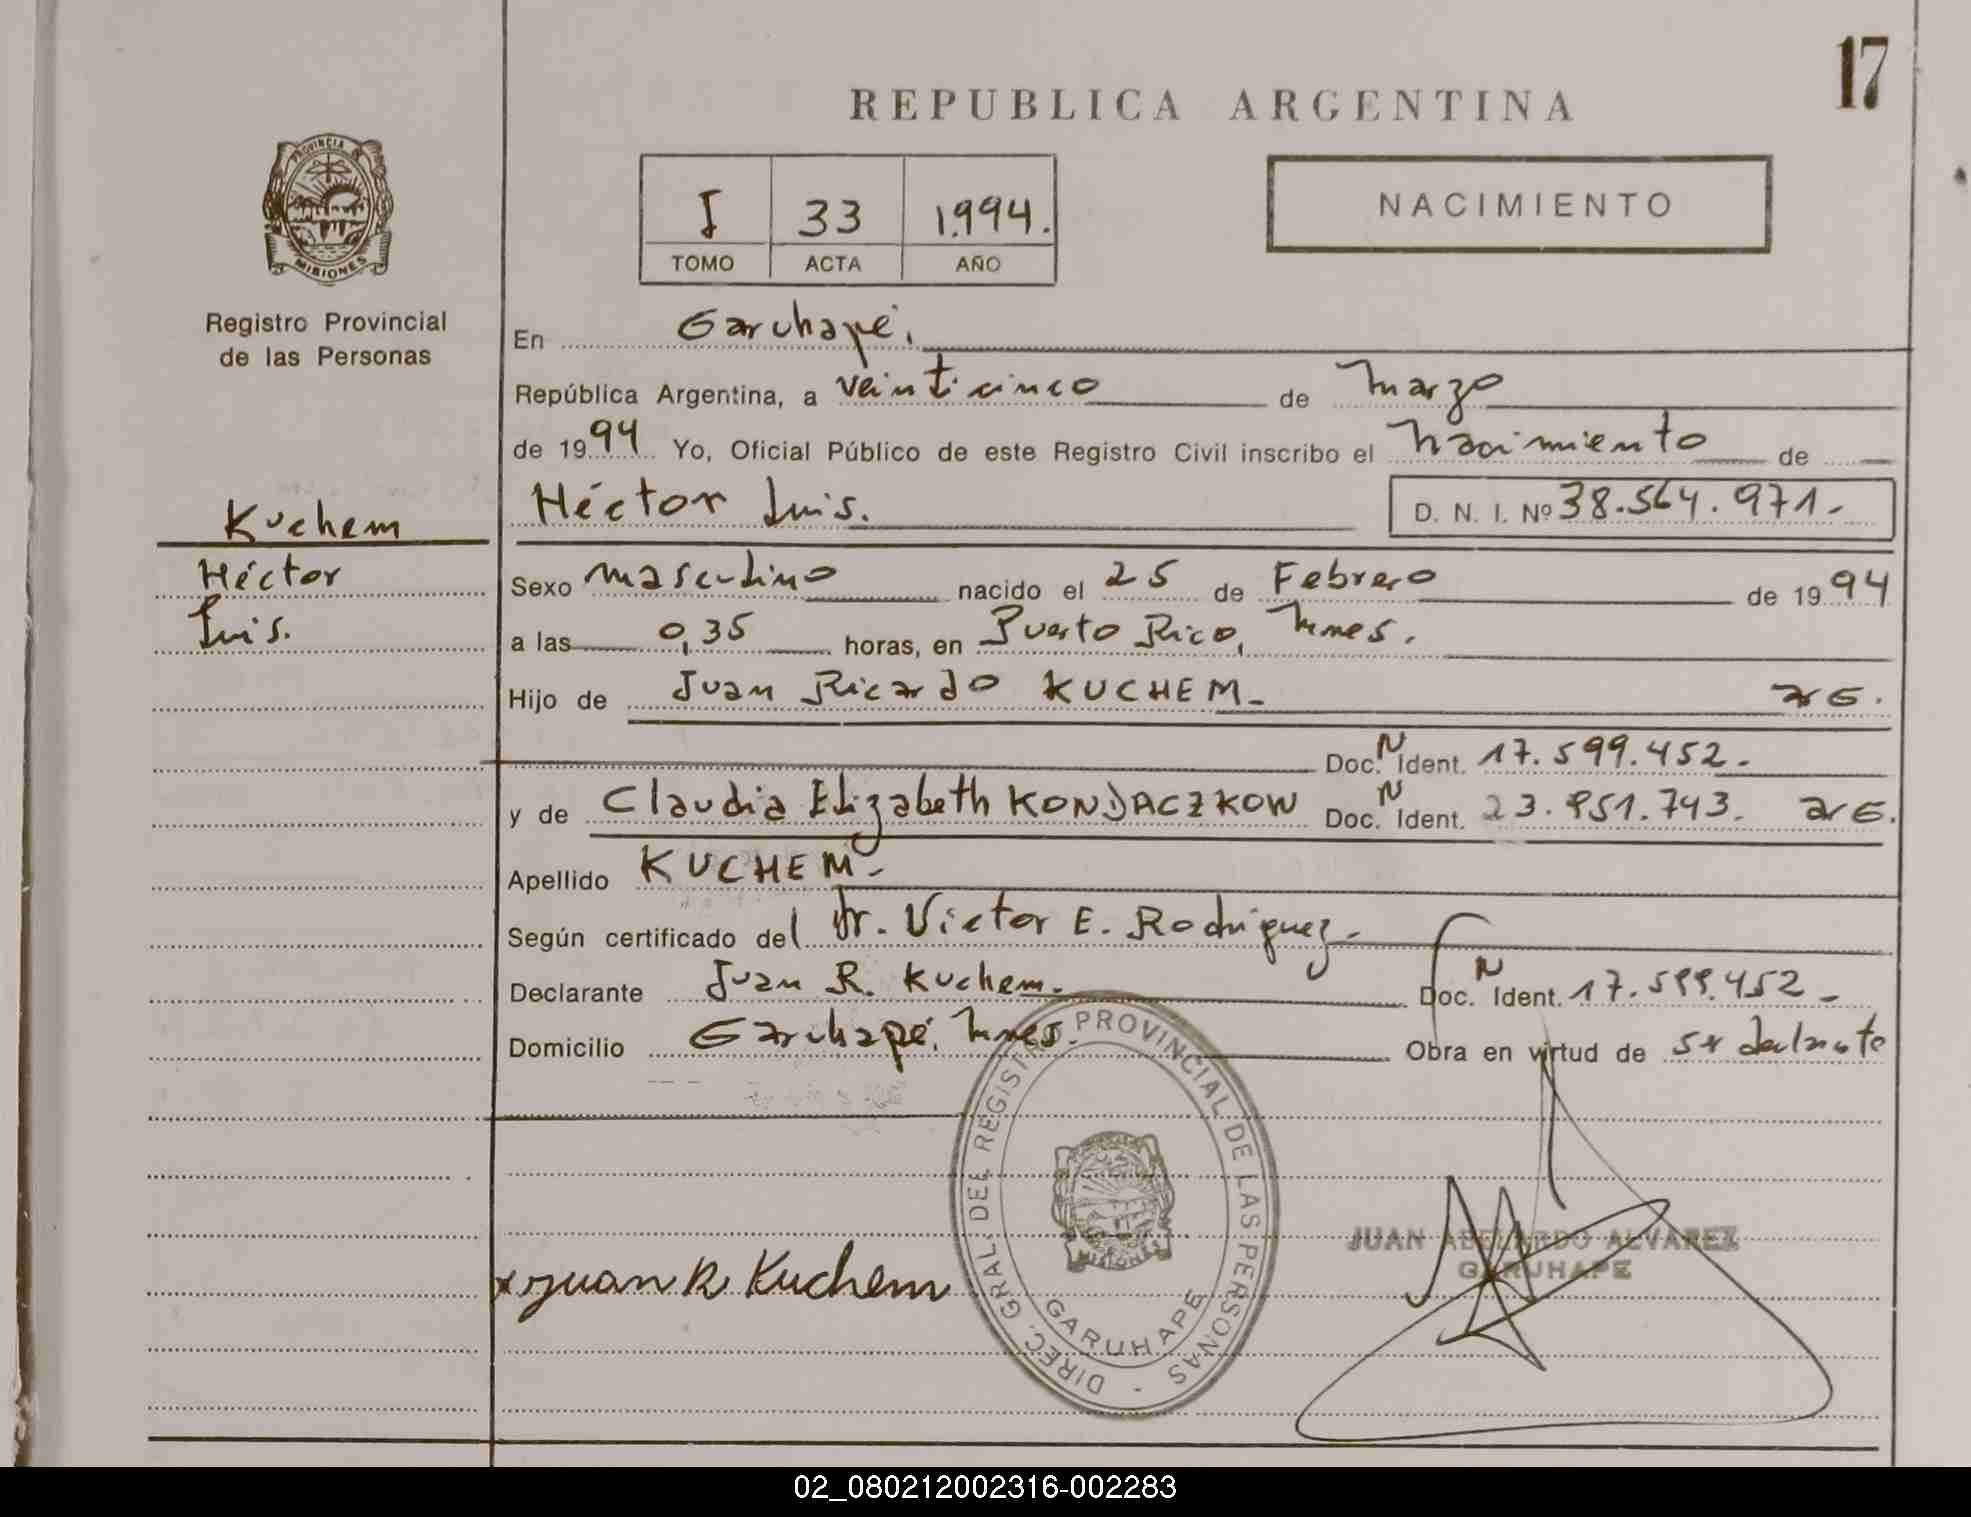 17
REPUBLICA ARGENTINA
PROVINCIA
MISIONES
Registro Provincial
de las Personas
I 33 1.994.
TOMO ACTA AÑO
NACIMIENTO
En Garuhapé,
República Argentina, a veinticinco de marzo
de 1994 Yo, Oficial Público de este Registro Civil inscribo el nacimiento de
Héctor Luis. D. N. I. Nº 38.564.971.-
Kuchem
Héctor
Luis.
Sexo masculino nacido el 25 de Febrero de 1994
a las 0,35 horas, en Puerto Rico, Mnes.
Hijo de Juan Ricardo KUCHEM.- arG.
Doc. N Ident. 17.599.452.-
y de Claudia Elizabeth KONDACZKOW Doc. N Ident. 23.951.743. arG.
Apellido KUCHEM.-
Según certificado del Dr. Victor E. Rodriguez.-
Declarante Juan R. Kuchem. Doc. N Ident. 17.599.452.-
Domicilio Garuhapé, Mnes. Obra en virtud de ser declarante
DIREC. GRAL. DEL REGISTRO PROVINCIAL DE LAS PERSONAS
MISIONES
GARUHAPE
JUAN ABELARDO ALVAREZ
GARUHAPE
x Juan R Kuchem
02_080212002316-002283